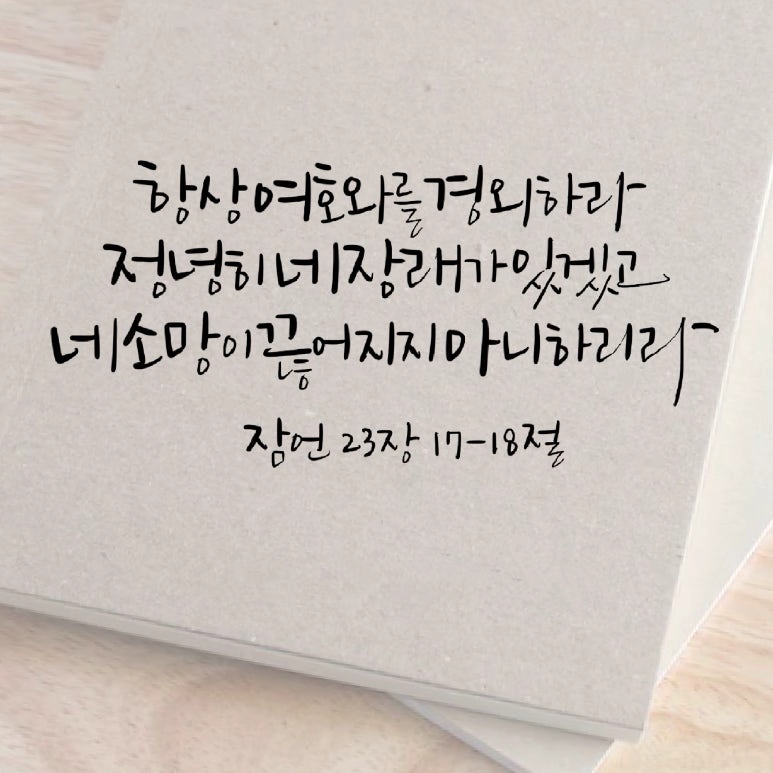 항상 여호와를 경외하라
정녕히 네 장래가 있겠고
네 소망이 끊어지지 아니하리라
잠언 23장 17-18절